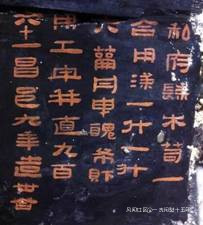 私府髹木笥一
合用漆一斗一升
丹臾醜布財
用工牢并直九百
六十一昌邑九年造廿合